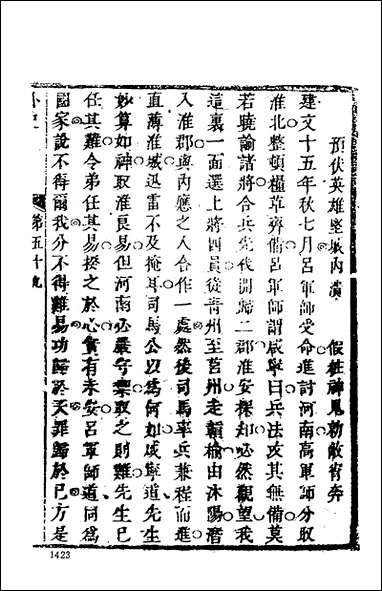 預伏英雄堅城內潰　假粧神鬼勍敵宵奔
建文十五年秋七月呂軍師受命進討河南高軍師分取
淮北整頓糧草齊偹呂軍師謂咸寧曰兵法攻其無備莫
若曉諭諸將合兵先伐開歸二郡淮安探知必然觀望我
這裏一面選上將四員從青州至莒州走贛榆由沐陽潛
入淮郡與內應之人合作一處然後司馬率兵兼程而進
直薄淮城迅雷不及掩耳司馬公以爲何如咸寧道先生
妙算如神取淮良易但河南必嚴守禦取之則難先生已
任其難令弟任其易揆之於心實有未安呂軍師道同爲
國家說不得爾我分不得難易功歸於天罪歸於已方是
第五十九
1423